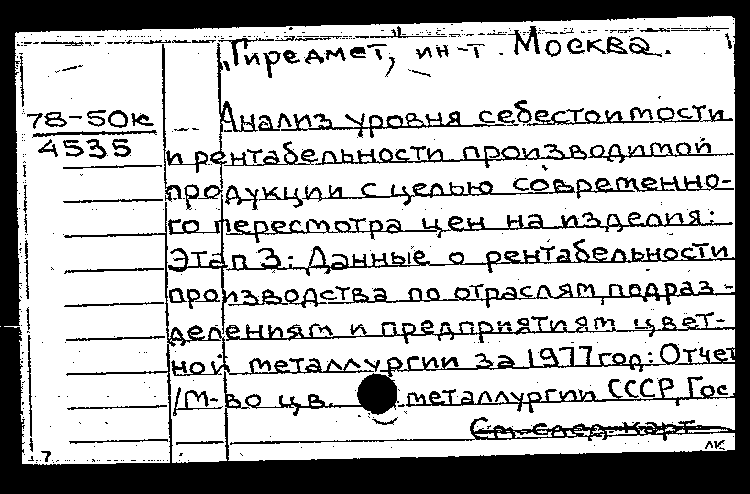 „Гиредмет, ин-т. Москва.
78-50к
4535
Анализ уровня себестоимости
и рентабельности производимой
продукции с целью современно-
го пересмотра цен на изделия:
Этап 3: Данные о рентабельности
производства по отраслям, подраз-
делениям и предприятиям цвет-
ной металлургии за 1977 год: Отчет
/М-во цв. металлургии СССР, Гос.
См. след. карт.
лк
7